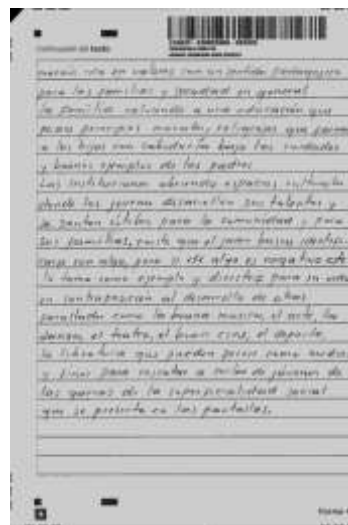 Continuación del texto
rica en valores con un sentido pedagógico
para las familias y sociedad en general
la familia volviendo a una educación que
principios morales, religiosos que
a los hijos con sabiduría bajo los cuidados
y buenos ejemplos de los padres
Las instituciones abriendo espacios culturales
donde los jóvenes desarrollen sus talentos y
se sientan útiles para la comunidad y para
sus familias, puesto que el joven busca
con algo, pero si ese algo es negativo
lo toma como ejemplo y directriz para su vida
en contraposición al desarrollo de otras
como la buena música, el arte, la
danza, el teatro, el buen cine, el deporte,
la literatura que pueden servir como medios
y fines para rescatar a miles de jóvenes de
las garras de la superficialidad social
que se presenta en las pantallas.